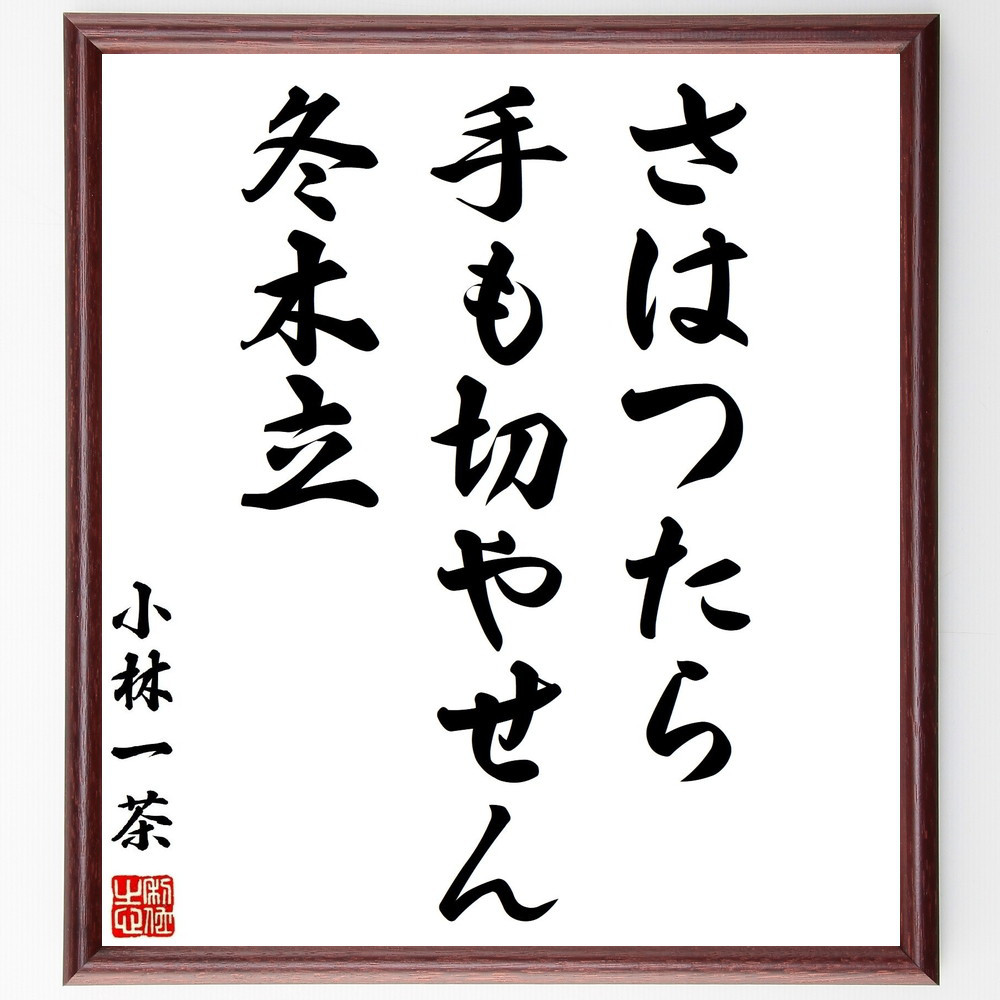 さはつたら
手も切やせん
冬木立
小林一茶